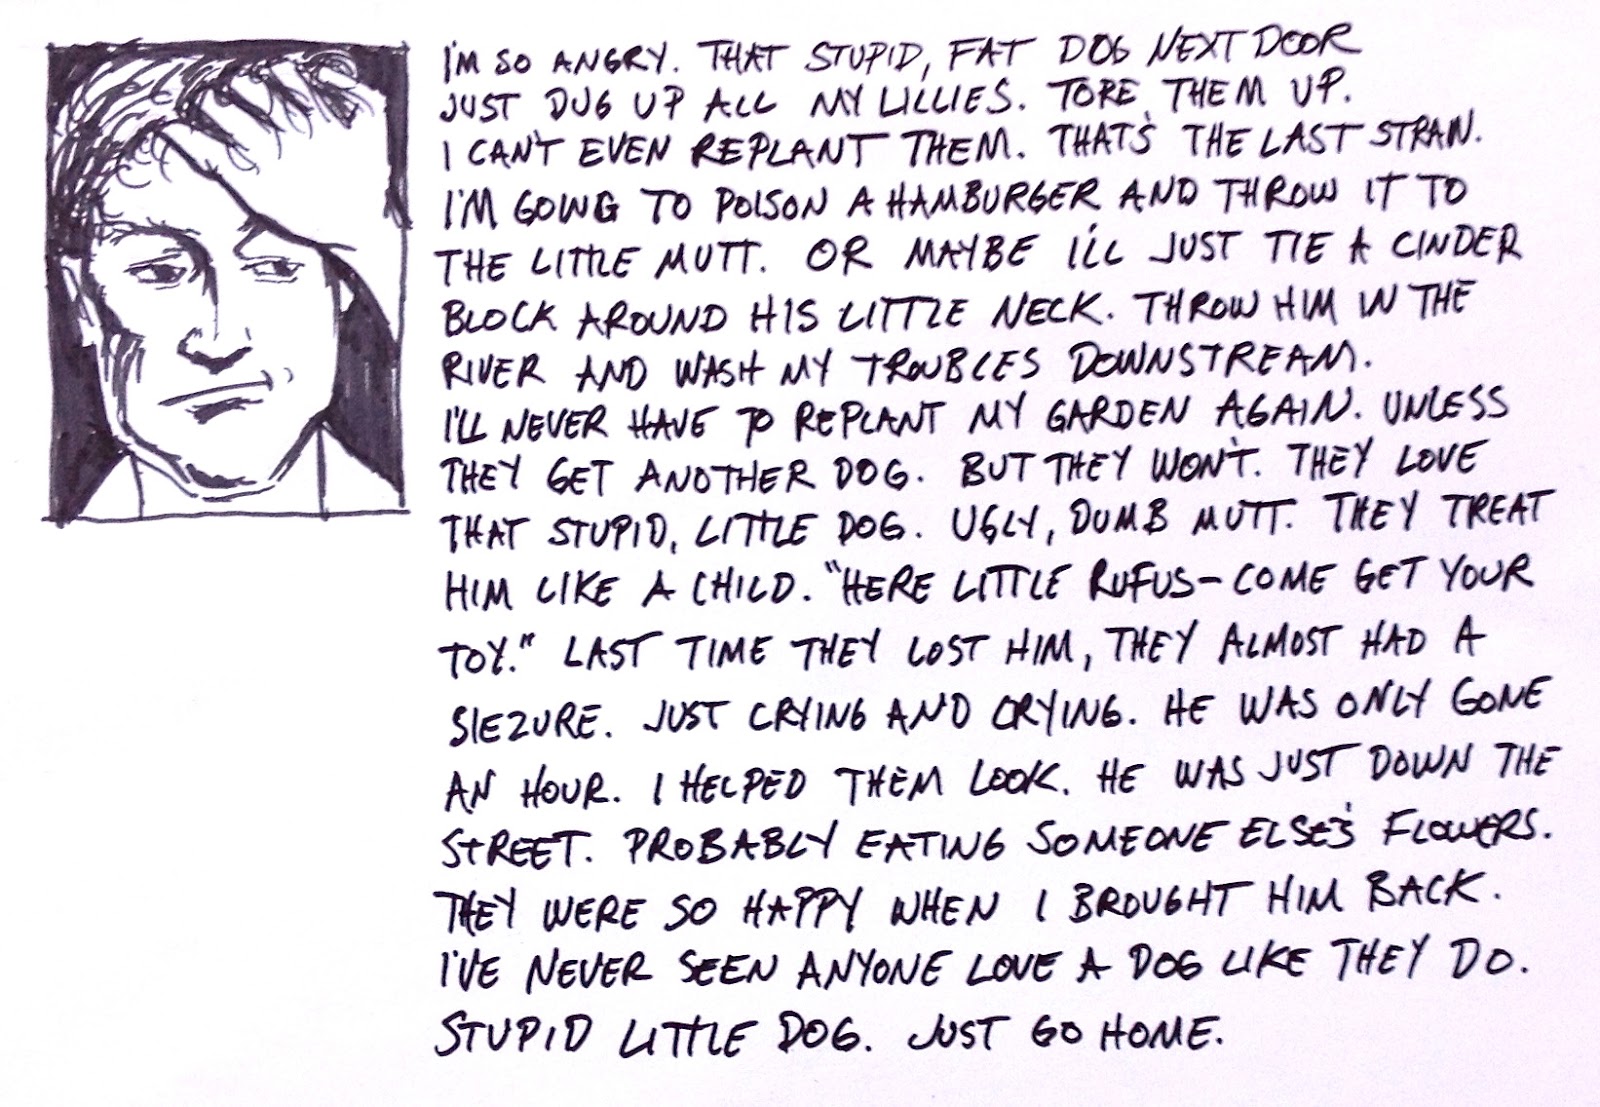 I'M SO ANGRY. THAT STUPID, FAT DOG NEXT DOOR
JUST DUG UP ALL MY LILLIES. TORE THEM UP.
I CAN'T EVEN REPLANT THEM. THAT'S THE LAST STRAW.
I'M GOING TO POISON A HAMBURGER AND THROW IT TO
THE LITTLE MUTT. OR MAYBE I'LL JUST TIE A CINDER
BLOCK AROUND HIS LITTLE NECK. THROW HIM IN THE
RIVER AND WASH MY TROUBLES DOWNSTREAM.
I'LL NEVER HAVE TO REPLANT MY GARDEN AGAIN. UNLESS
THEY GET ANOTHER DOG. BUT THEY WON'T. THEY LOVE
THAT STUPID, LITTLE DOG. UGLY, DUMB MUTT. THEY TREAT
HIM LIKE A CHILD. "HERE LITTLE RUFUS—COME GET YOUR
TOY." LAST TIME THEY LOST HIM, THEY ALMOST HAD A
SIEZURE. JUST CRYING AND CRYING. HE WAS ONLY GONE
AN HOUR. I HELPED THEM LOOK. HE WAS JUST DOWN THE
STREET. PROBABLY EATING SOMEONE ELSE'S FLOWERS.
THEY WERE SO HAPPY WHEN I BROUGHT HIM BACK.
I'VE NEVER SEEN ANYONE LOVE A DOG LIKE THEY DO.
STUPID LITTLE DOG. JUST GO HOME.